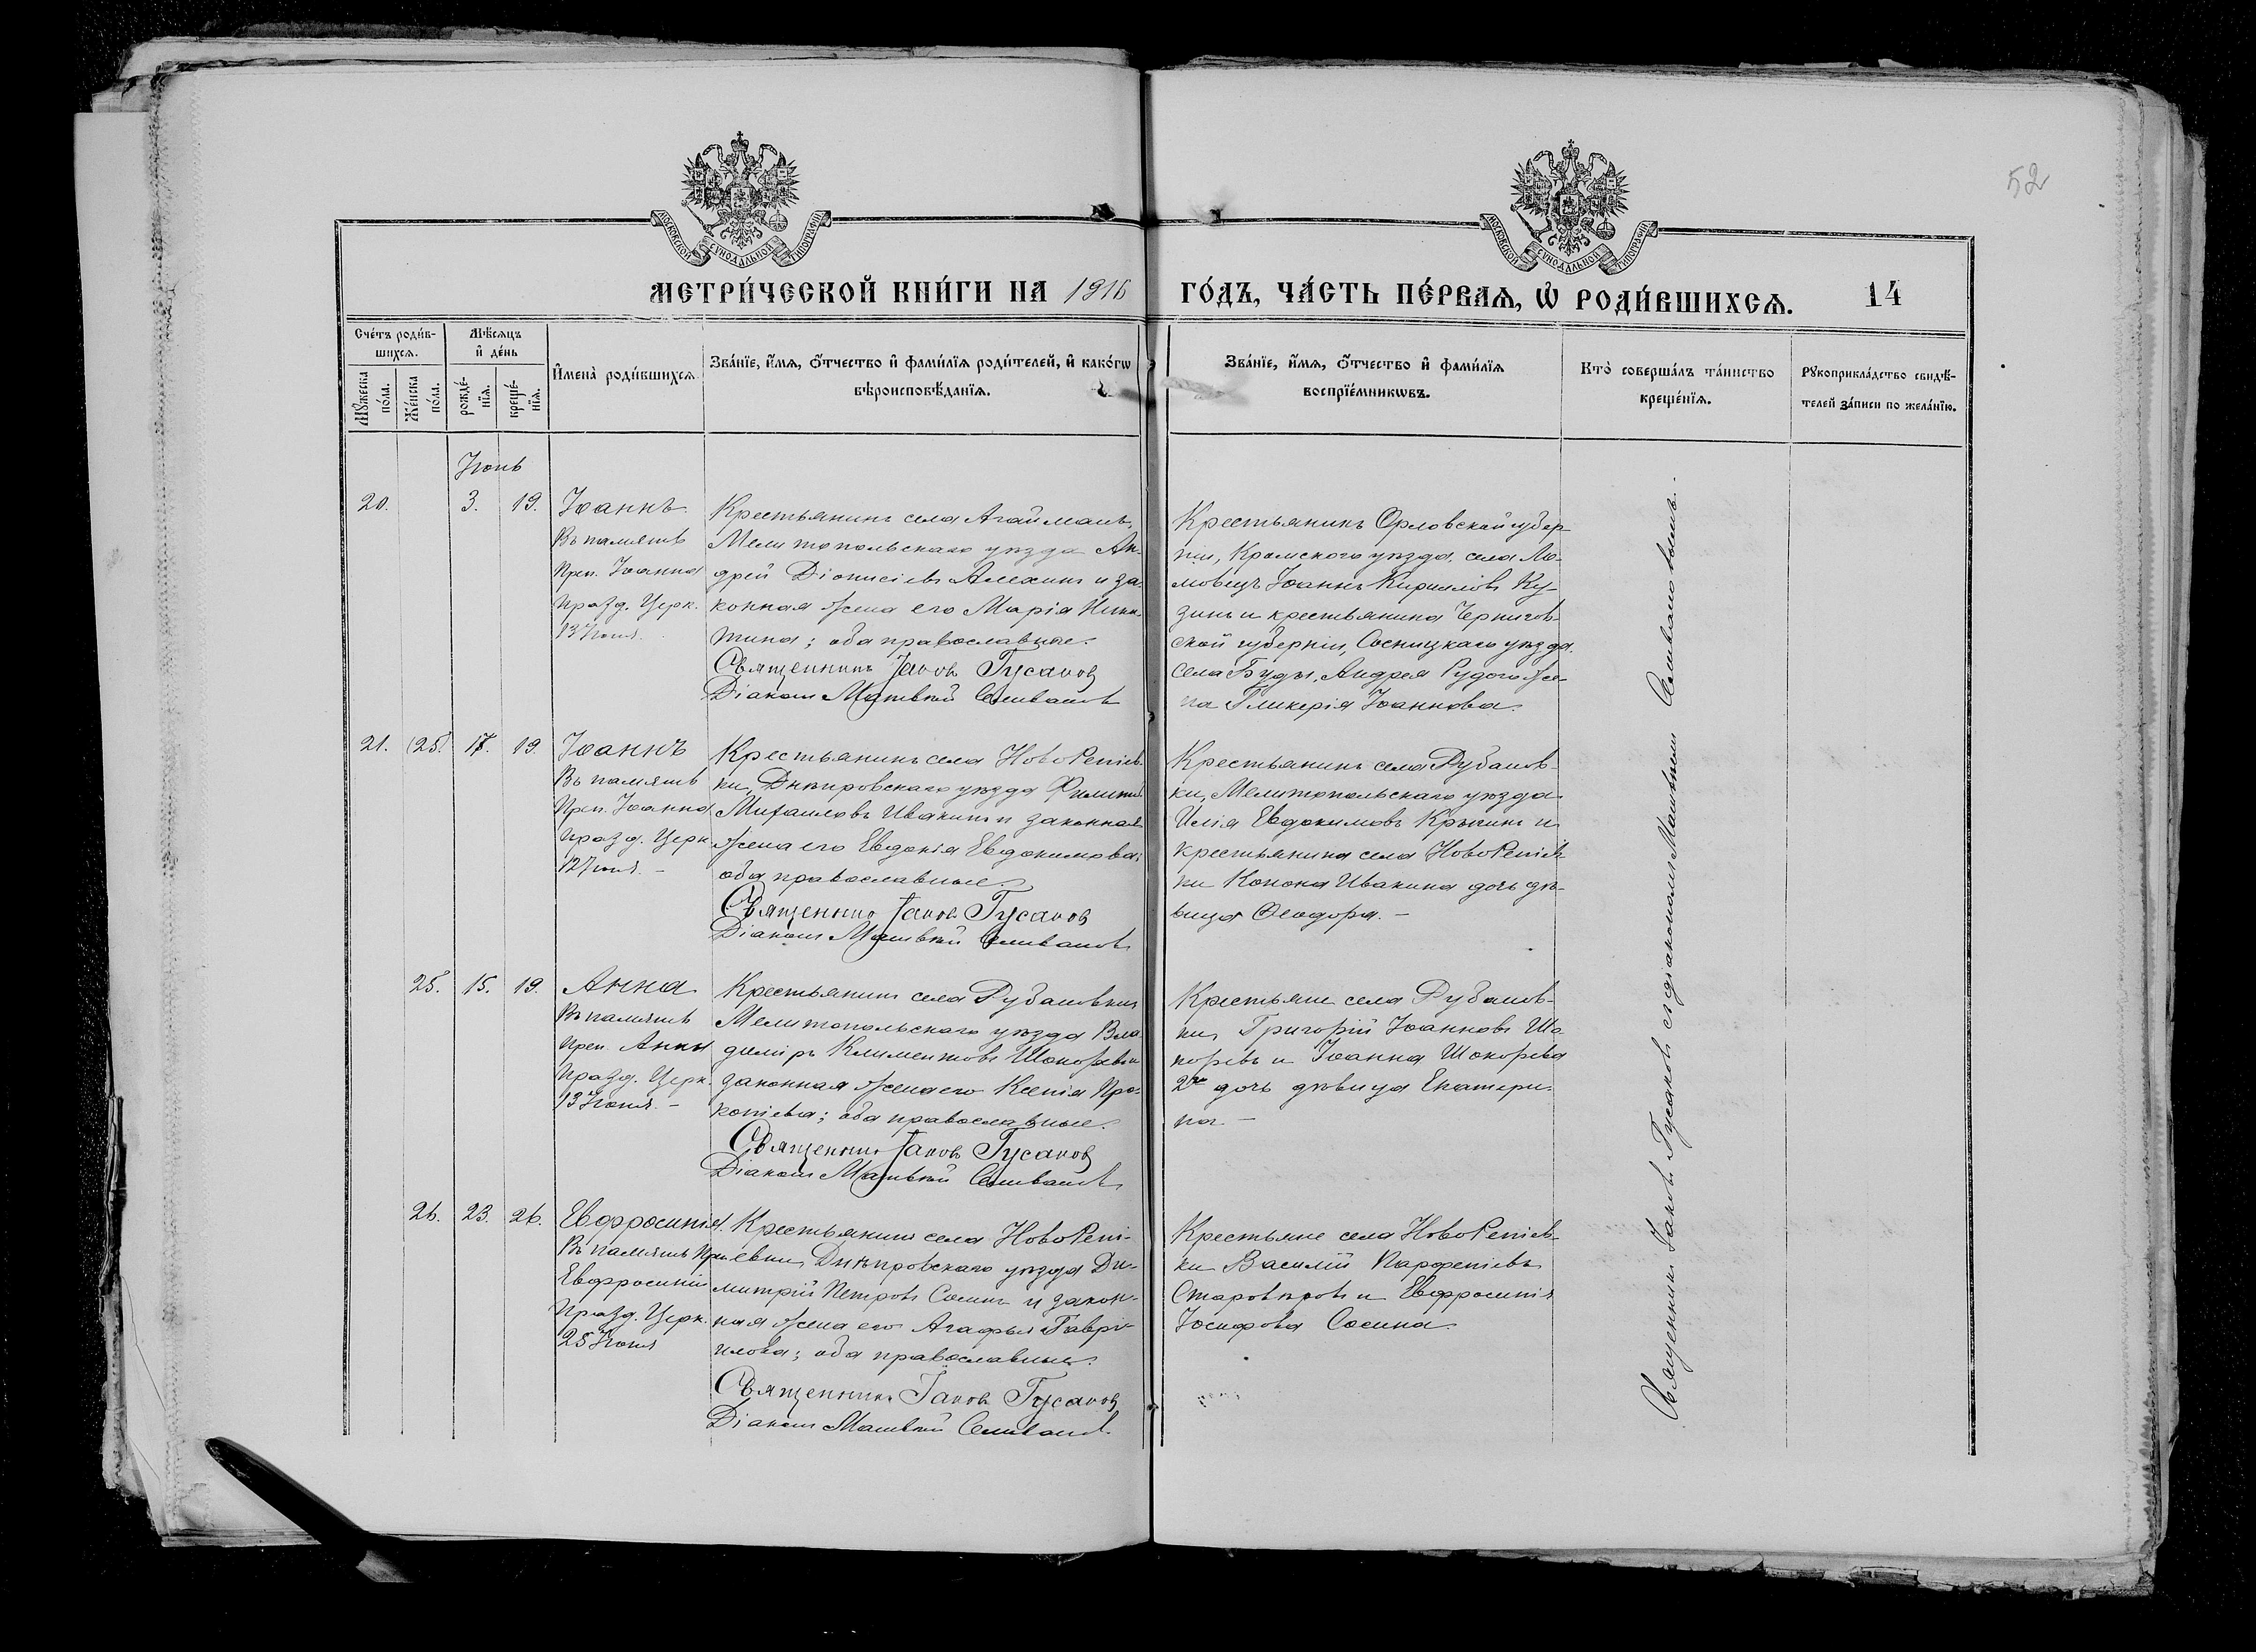 52
МОСКОВСКОЙ СѴНОДАЛЬНОЙ ТИПОГРАФІИ
МОСКОВСКОЙ СѴНОДАЛЬНОЙ ТИПОГРАФІИ
МЕТРИ́ЧЕСКОЙ КНИ́ГИ НА 1916 ГО́ДЪ, ЧА́СТЬ ПЕ́РВАѦ, Ѡ҆ РОДИ́ВШИХСѦ. 14
Сче́тъ роди́в-
шихсѧ.
Мꙋ́жеска по́ла.
Же́нска по́ла.
Мѣ́сѧцъ
и҆ де́нь
рожде́-
нїѧ.
креще́-
нїѧ.
И҆мена̀ роди́вшихсѧ
Зва́нїе, и҆́мѧ, ѻ҆́тчество и҆ фами́лїѧ роди́телей, и҆ како́гѡ
вѣроисповѣ́данїѧ.
Зва́нїе, и҆́мѧ, ѻ҆́тчество и҆ фами́лїѧ
воспрїе́мникѡвъ.
Кто̀ соверша́лъ та́инство
креще́нїѧ.
Рꙋкоприкла́дство свидѣ́-
телей за́писи по жела́нїю.
Іюнь
20. 3. 19. Іоаннъ
Въ память
Преп. Іоанна
празд. Церк.
13 Іюня.
Крестьянинъ села Агайманъ,
Мелитопольскаго уѣзда Ан-
дрей Діонисіевъ Алехинъ и за-
конная жена его Марія Ники-
тина; оба православные.
Священникъ Іаковъ Гусаковъ
Діаконъ Матвѣй Селивановъ
Крестьянинъ Орловской губер-
ніи, Кромского уѣзда, села Ло-
мовецъ Іоаннъ Кирилловъ Ку-
зинъ и крестьянина Чернигов-
ской губерніи, Сосницкаго уѣзда
села Буды, Андрея Рудого же-
на Гликерія Іоаннова.
21. (25. 17. 19. Іоаннъ
Въ память
Преп. Іоанна
празд. Церк.
12 Іюня. –
Крестьянинъ села НовоРепіев-
ки, Днѣпровскаго уѣзда Филиппъ
Михаиловъ Ивакинъ и законная
жена его Евдокія Евдокимова;
оба православные.
Священникъ Іаковъ Гусаковъ
Діаконъ Матвѣй Селивановъ
Крестьянинъ села Рубанов-
ки, Мелитопольскаго уѣзда
Илія Евдокимовъ и
крестьянина села НовоРепіев-
ки Конона Ивакина дочь дѣ-
вица Ѳеодора. –
25. 15. 19. Анна
Въ память
преп. Анны
празд. Церк.
13 Іюня. –
Крестьянинъ села Рубановки
Мелитопольскаго уѣзда Вла-
диміръ Климентовъ Шокоревъ и
законная жена его Ксенія Про-
копіева; оба православные.
Священникъ Іаковъ Гусаковъ
Діаконъ Матвѣй Селивановъ
Крестьяне села Рубанов-
ки Григорій Іоанновъ Шо-
коревъ и Іоанна Шокорева
2го дочь дѣвица Екатери-
на –
26. 23. 26. Евфросинія.
Въ память Преп.
Евфросиніи
празд. Церк.
25 Іюня
Крестьянинъ села НовоРепі-
евки, Днѣпровскаго уѣзда Ди-
митрій Петровъ Сосинъ и закон-
ная жена его Агафья Гаврі-
илова; оба православные.
Священникъ Іаковъ Гусаковъ
Діаконъ Матвѣй Селивановъ
Крестьяне села НовоРепіев-
ки Василій Парфеніевъ
Старовѣровъ и Евфросинія
Іосифова Сосина.
Священникъ Іаковъ Гусаковъ съ діакономъ Матвѣемъ Селивановымъ.